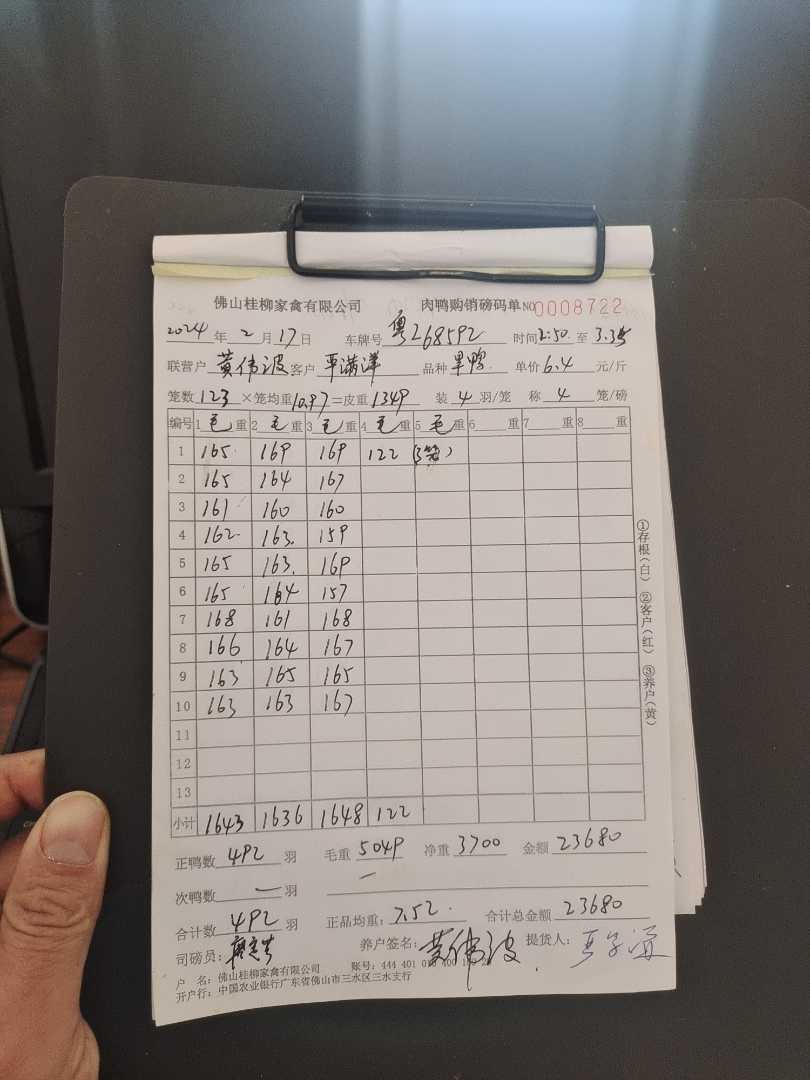 佛山桂柳家禽有限公司 肉鸭购销磅码单 NO 0008722
2024年2月17日 车牌号 粤Z68592 时间2:50.至3.35
联营户 黄伟波 客户 品种 旱鸭. 单价6.4元/斤
笼数123×笼均重10.97=皮重1349 装4羽/笼 称4笼/磅
编号 1毛重 2毛重 3毛重 4毛重 5毛重 6重 7重 8重
1 165 169 169 122 (3笼)
2 165 164 167
3 161 160 160
4 162 163. 159
5 165 163. 169
6 165 164 157
7 168 161 168
8 166 164 167
9 163 165 165
10 163 163 167
11
12
13
小计 1643 1636 1648 122
正鸭数492羽 毛重5049 净重3700 金额23680
次鸭数一羽 一
合计数492羽 正品均重:7.52. 合计总金额23680
司磅员: 养户签名:黄伟波. 提货人:
户 名:佛山桂柳家禽有限公司 账号:444 401 010 400
开户行:中国农业银行广东省佛山市三水区三水支行
①存根(白) ②客户(红) ③养户(黄)